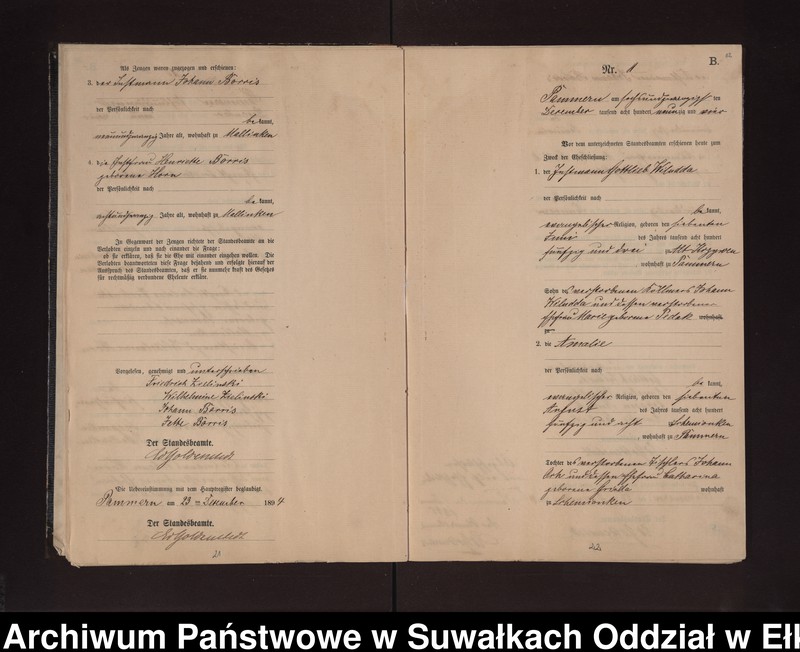 Als Zeugen waren zugezogen und erschienen:
3. der Instmann Johann Borris
der Persönlichkeit nach
be kannt,
neunundzwanzig Jahre alt, wohnhaft zu Mallinken
4. die Instfrau Henriette Borris
geborene Horn
der Persönlichkeit nach
be kannt,
achtundzwanzig Jahre alt, wohnhaft zu Mallinken
In Gegenwart der Zeugen richtete der Standesbeamte an die
Verlobten einzeln und nach einander die Frage:
ob sie erklären, daß sie die Ehe mit einander eingehen wollen. Die
Verlobten beantworteten diese Frage bejahend und erfolgte hierauf der
Ausspruch des Standesbeamten, daß er sie nunmehr kraft des Gesetzes
für rechtmäßig verbundene Eheleute erkläre.
Vorgelesen, genehmigt und unterschrieben
Friedrich Zielinski
Wilhelmine Zielinski
Johann Borris
Jette Borris
Der Standesbeamte.
Die Uebereinstimmung mit dem Hauptregister beglaubigt.
Pammern am 23ten Dezember 1894
Der Standesbeamte.
21
B.
Nr.
Pammern am sechsundzwanzigsten
December tausend acht hundert neunzig und vier
Vor dem unterzeichneten Standesbeamten erschienen heute zum
Zweck der Eheschließung:
1. der Instmann Gottlieb
der Persönlichkeit nach
be kannt,
evangelischer Religion, geboren den siebenten
des Jahres tausend acht hundert
fünfzig und drei
, wohnhaft zu Pammern
Sohn des verstorbenen Johann
und dessen verstorbene
Ehefrau Marie geborene wohnhaft
zu
2. die Amalie
der Persönlichkeit nach
be kannt,
evangelischer Religion, geboren den siebenten
August des Jahres tausend acht hundert
fünfzig und acht
, wohnhaft zu Pammern
Tochter des verstorbenen Tischlers Johann
und dessen Ehefrau Catharina
geborene wohnhaft
zu
22
Archiwum Państwowe w Suwałkach Oddział w Ełk